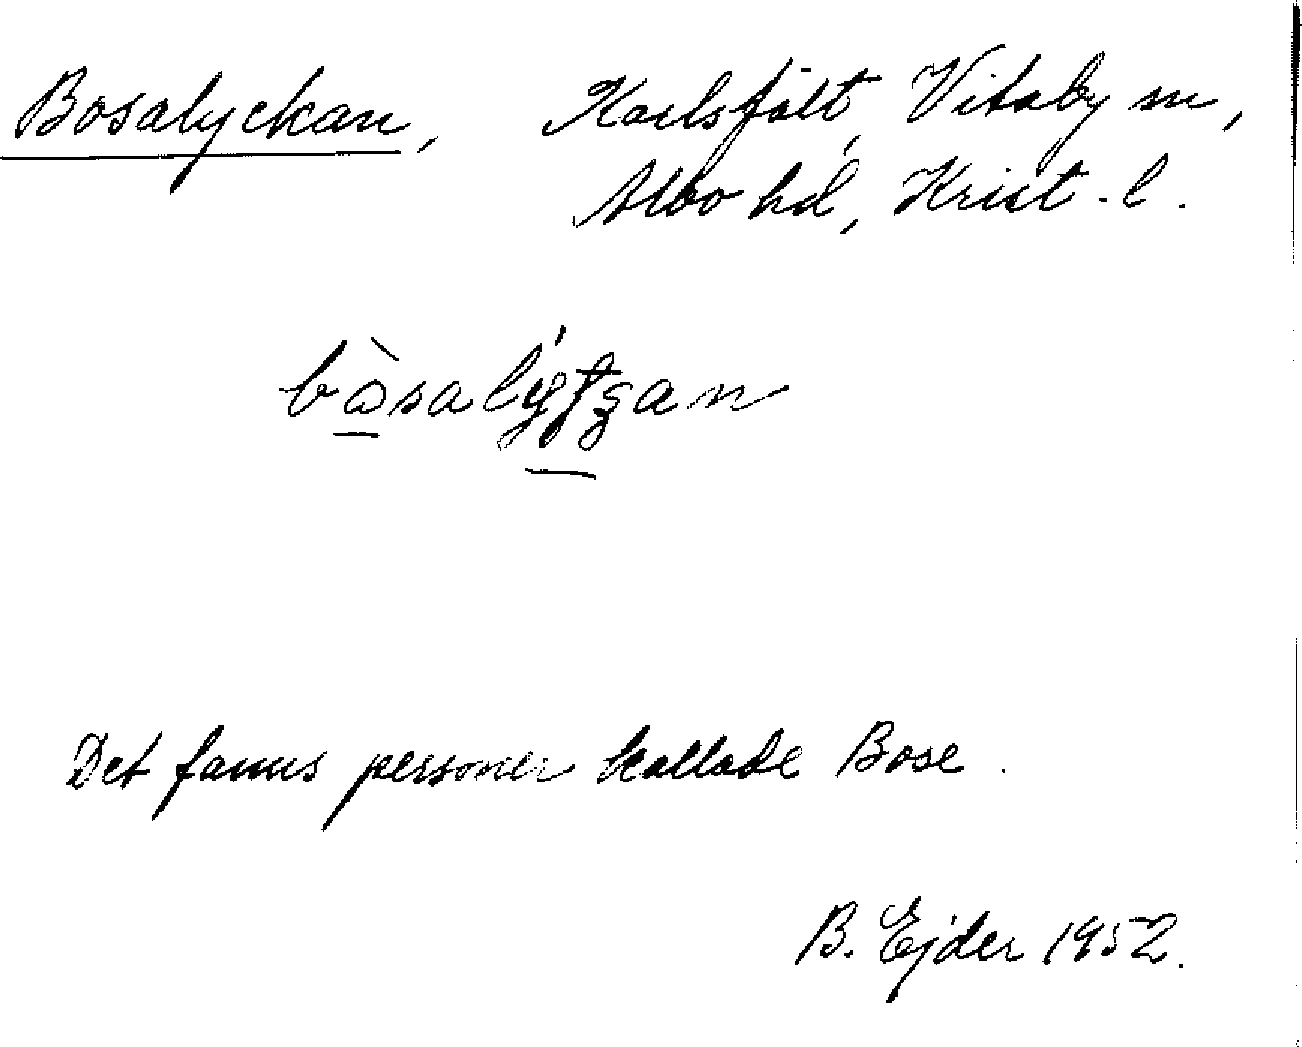 Bosalyckan, Karlsfält, Vitaby sn,
Albo hd, Krist. l.
Det fanns personer kallade Bose.
B. Ejder 1952.